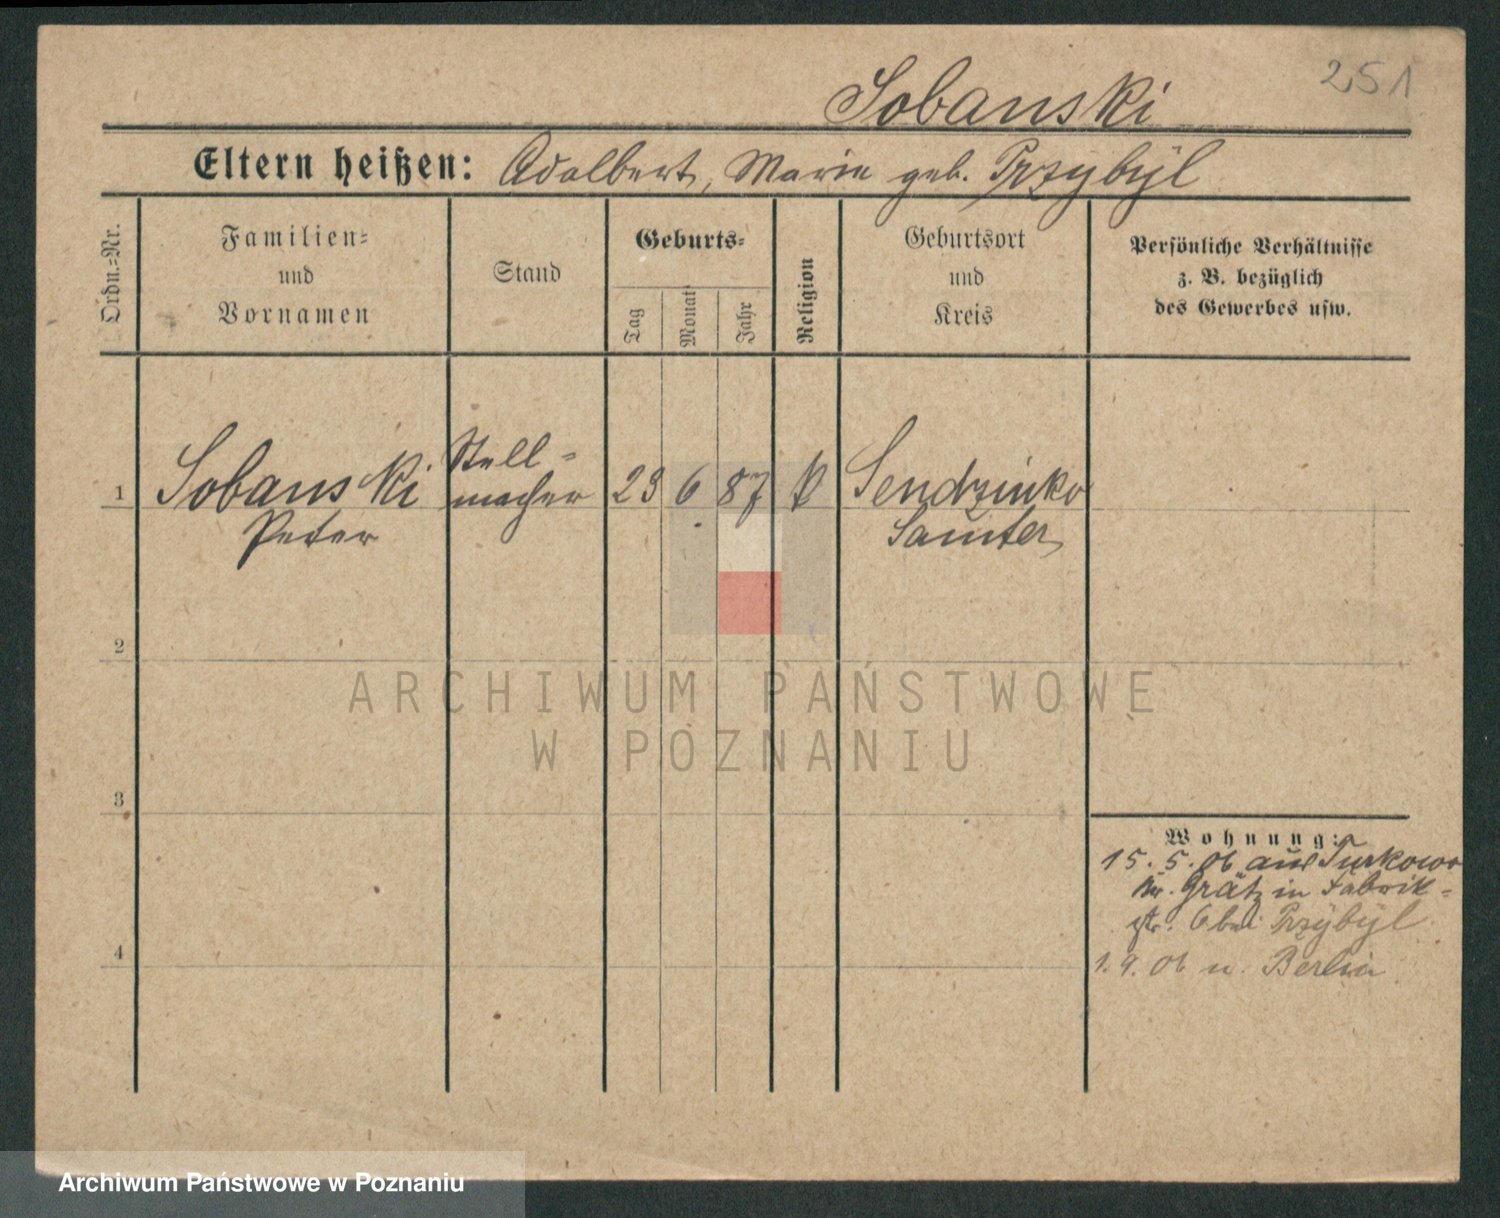 251
Sobanski
Eltern heißen: Adalbert, Marie geb. Przybÿl
Ordn.-Nr.
Familien-
und
Vornamen
Stand
Geburts-
Tag
Monat
Jahr
Religion
Geburtsort
und
Kreis
Persönliche Verhältnisse
z. B. bezüglich
des Gewerbes usw.
1 Sobanski Stell- 23 6 87 k Sendzinko
Peter macher Samter
2
3
4
Wohnung:
15. 5. 06 aus Turkowo
Kr. Grätz in Fabrik-
str. 6 bei Przÿbÿl
1. 9. 06 n. Berlin
ARCHIWUM PAŃSTWOWE
W POZNANIU
Archiwum Państwowe w Poznaniu